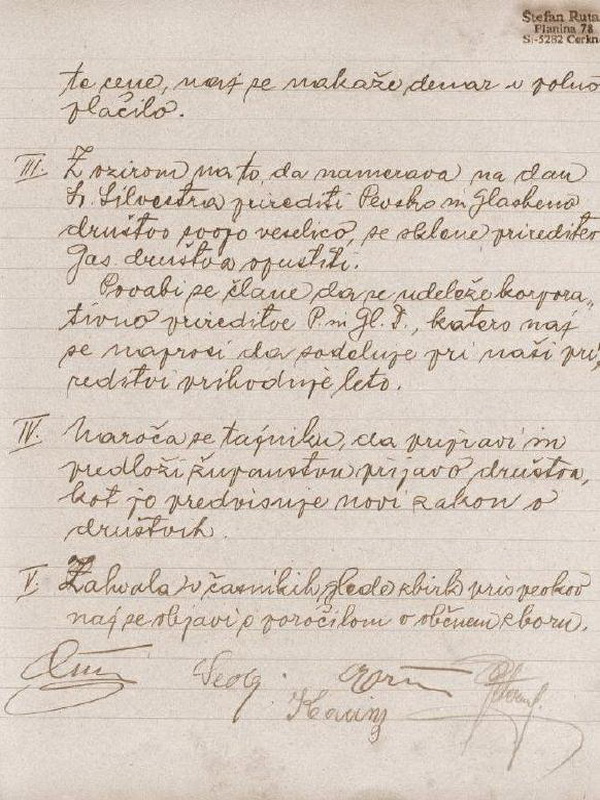 Štefan Ruta
Planina 78
SI-5282 Cerkn
te cene, naj se nakaže denar v polno
plačilo.
III. Z ozirom na to, da namerava na dan
Sv. Silvestra prirediti Pevsko in Glasbeno
društvo svojo veselico, se sklene prireditev
Gas. društva opustiti.
Povabi se člane da se udeleže korpora„
tivno prireditve P. in Gl. D., katero naj
se naprosi da sodeluje pri naši pri„
redstvi prihodnje leto.
IV. Naroča se tajniku, da pripravi in
predloži županstvu prijavo društva,
kot jo predpisuje novi zakon o
društvih.
V. Zahvala v časnikih glede zbirk prispevkov
naj se objavi s poročilom o občnem zboru.